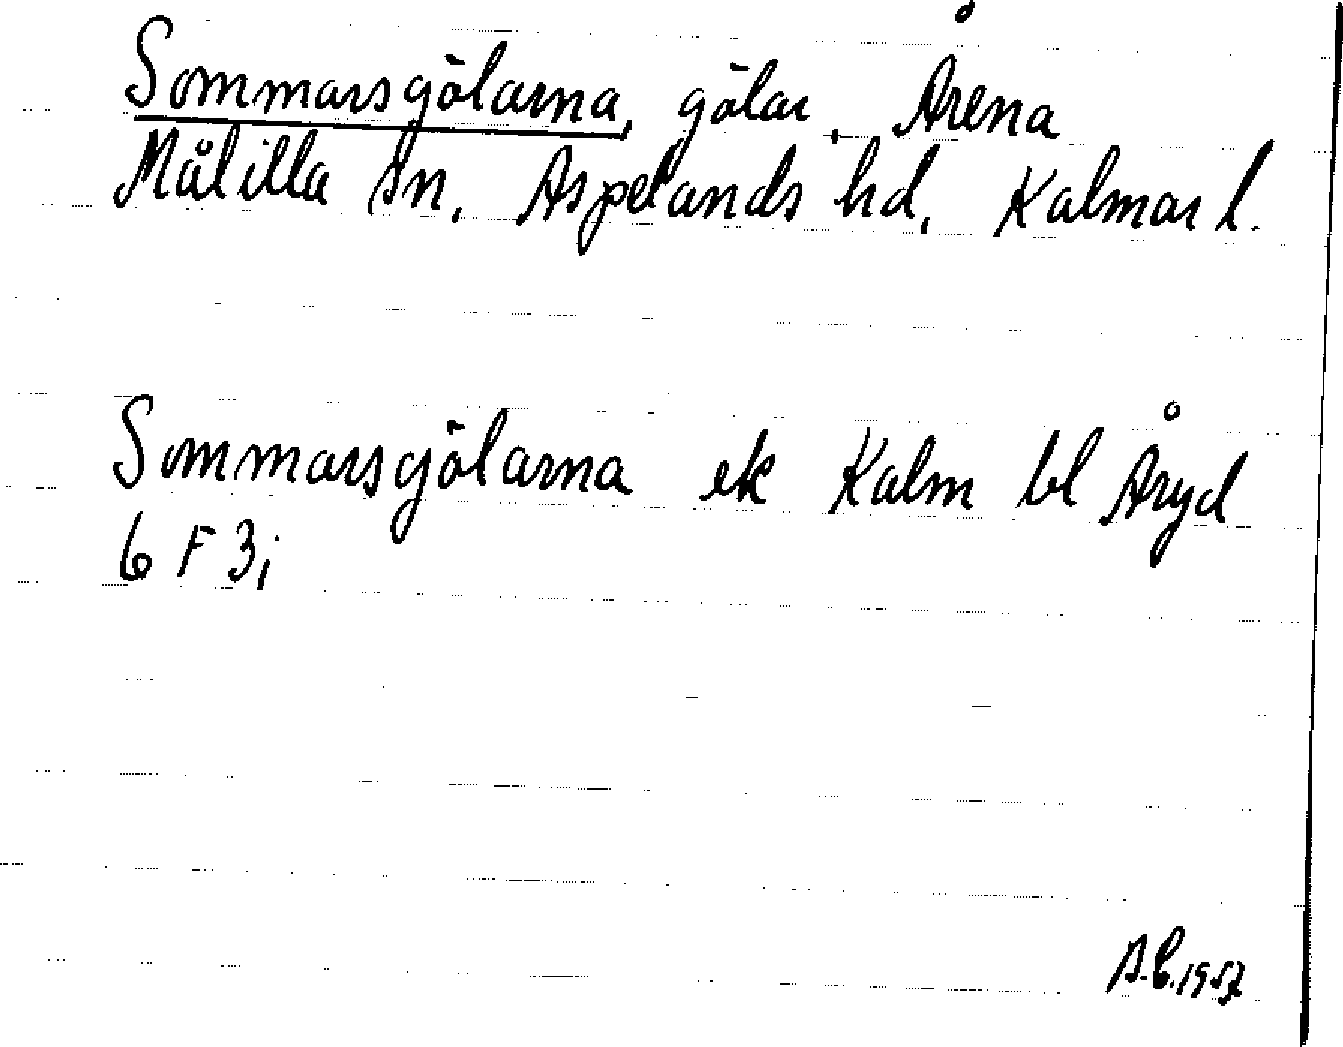 Sommarsgölarna, gölar, Årena
Målilla sn, Aspelands hd, Kalmar l.
Sommarsgölarna ek Kalm bl Åryd
6 F 3i
A.C. 1957